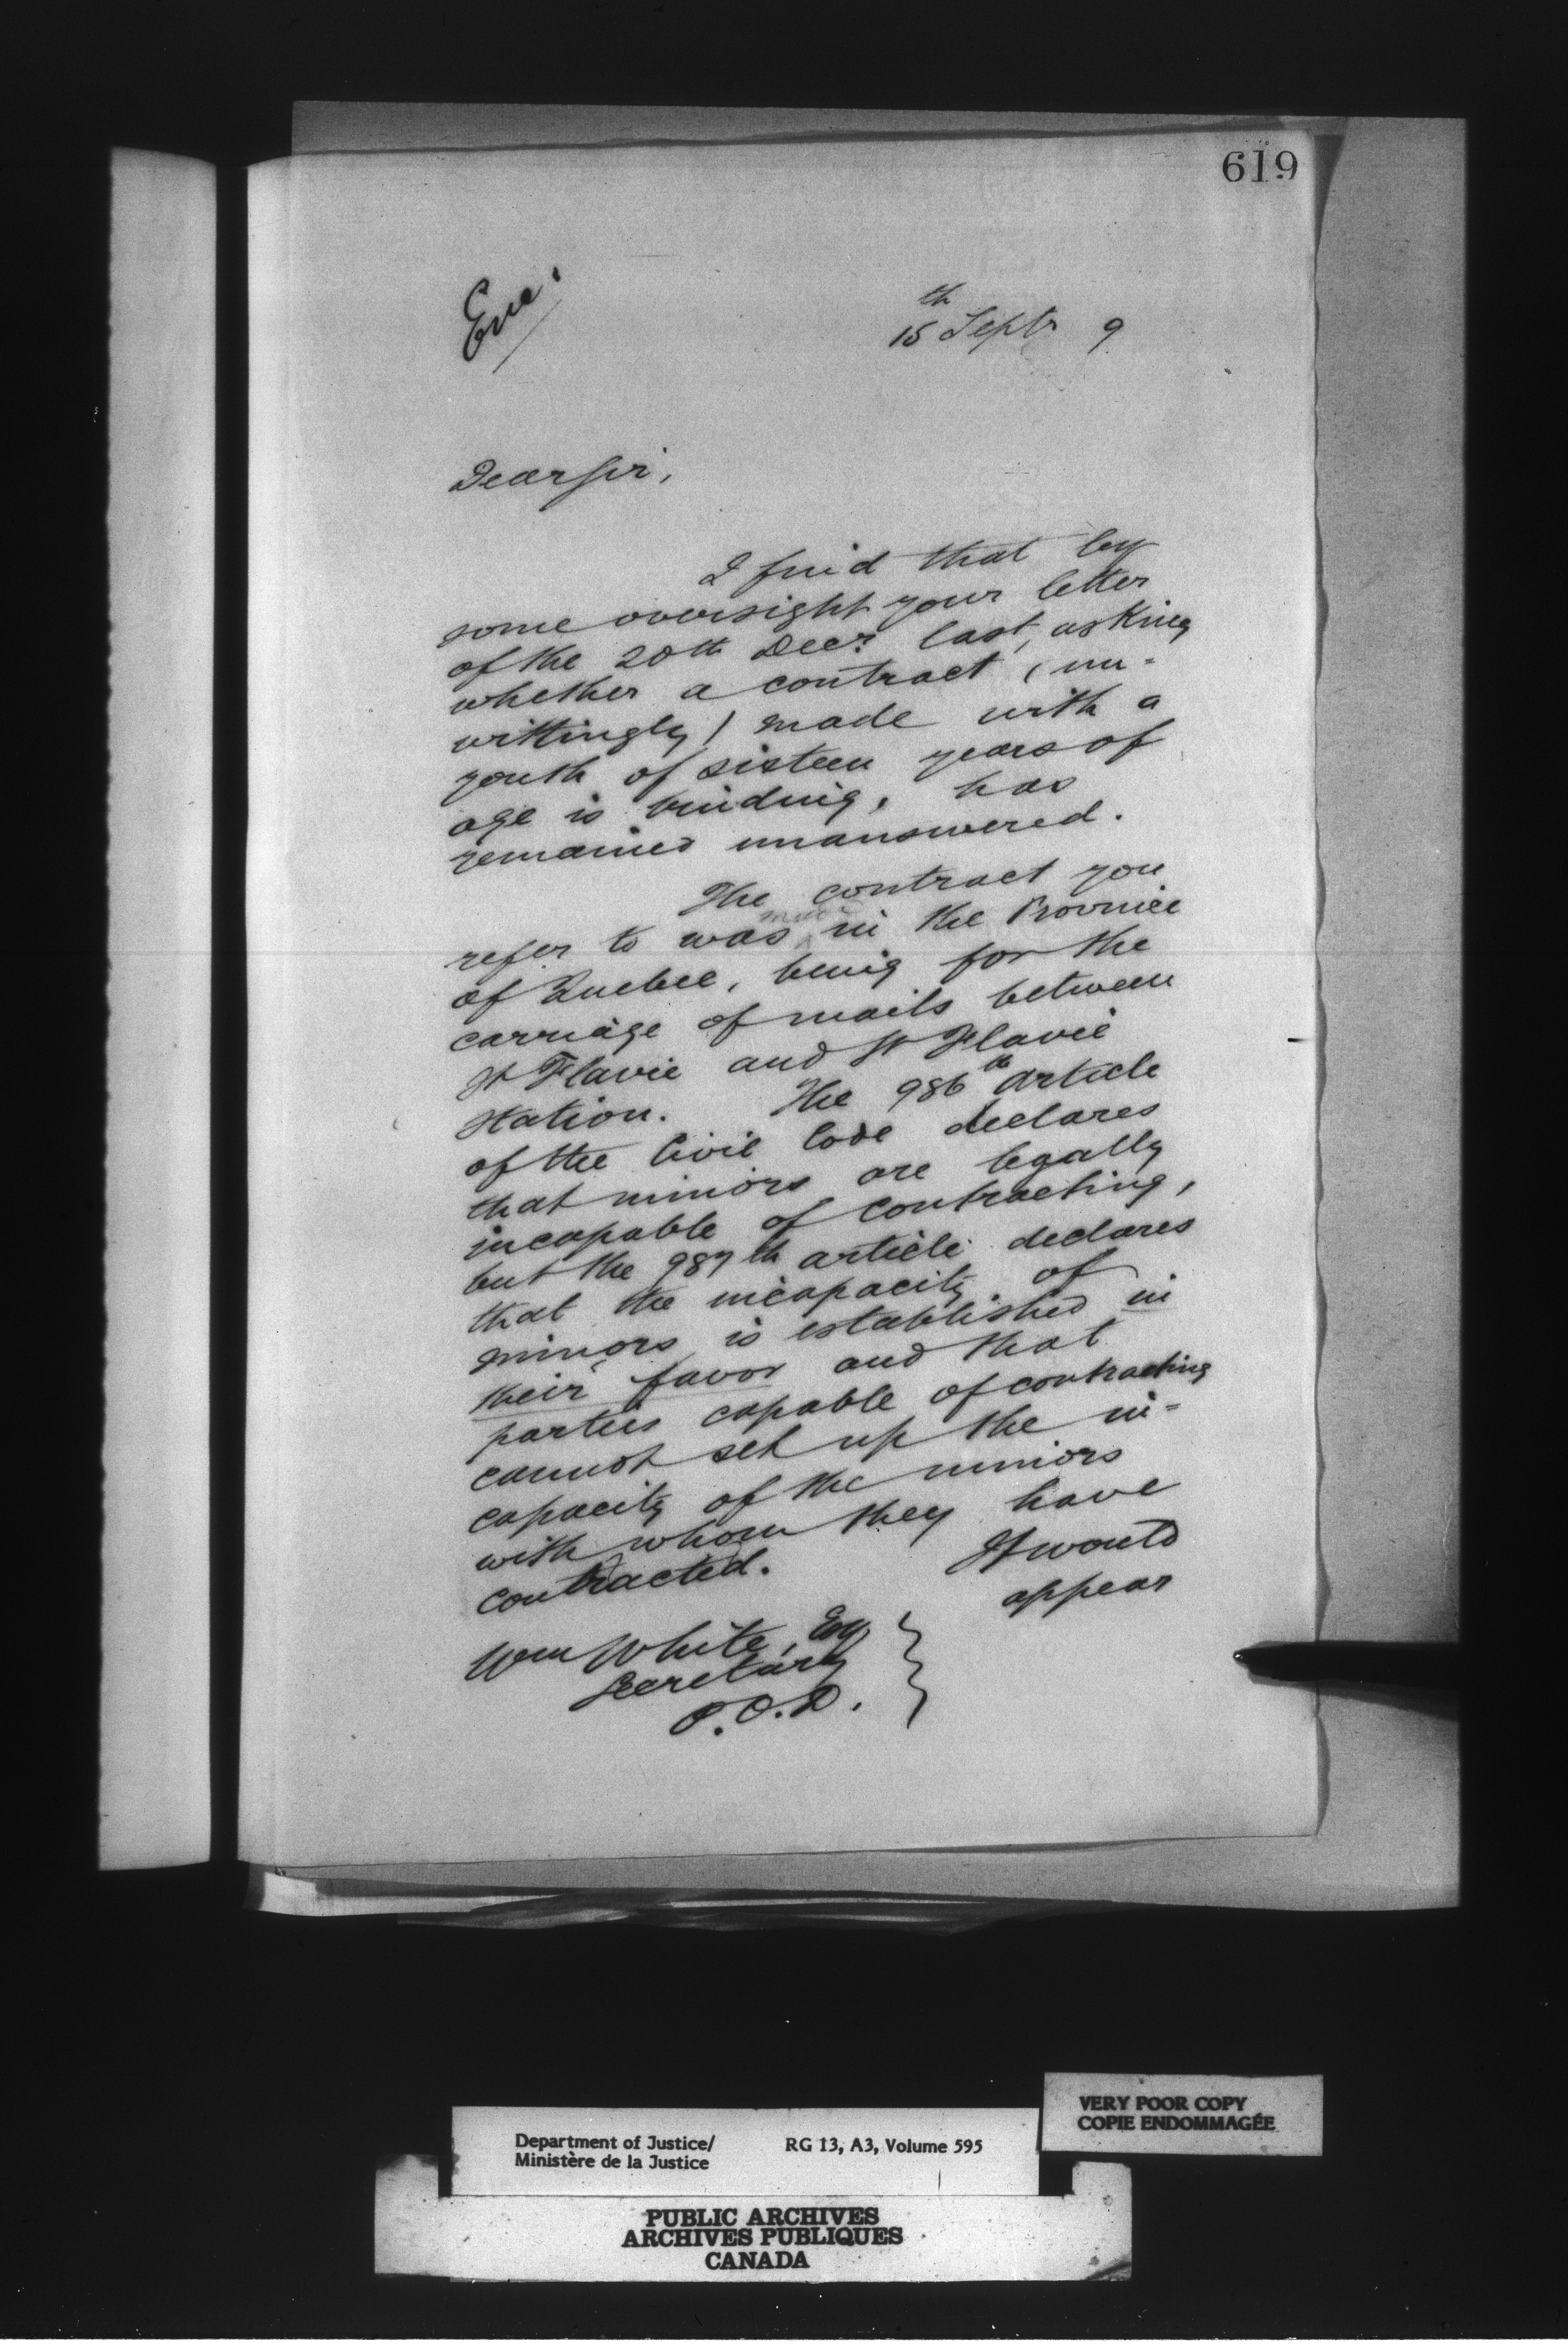 619
Enc.
15th Septr 9
Dear Sir,
I find that by
some oversight your letter
of the 20th Decr last, asking
whether a contract (un-
wittingly) made with a
youth of sixteen years of
age is binding, has
remained unanswered.
The contract you
refer to was made in the Province
of Quebec, being for the
carriage of mails between
St Flavie and St Flavie
Station. The 986th Article
of the Civil Code declares
that minors are legally
incapable of contracting,
but the 987th article declares
that the incapacity of
minors is established in
their favor and that
parties capable of contracting
cannot set up the in-
capacity of the minors
with whom they have
contracted. It would
appear
Wm White, Esq
Secretary
P.O.D.
VERY POOR COPY
COPIE ENDOMMAGÉE
Department of Justice/ RG 13, A3, Volume 595
Ministère de la Justice
PUBLIC ARCHIVES
ARCHIVES PUBLIQUES
CANADA